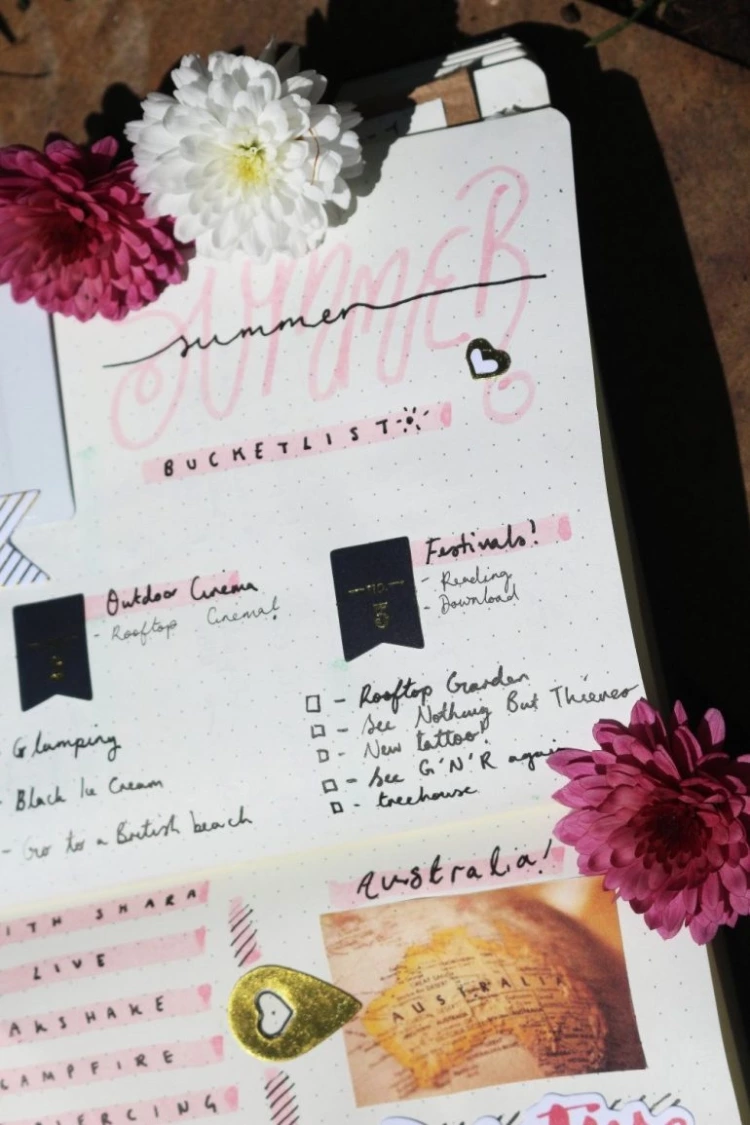 SUMMER
summer
BUCKETLIST
Outdoor Cinema
- Rooftop Cinema!
Festivals!
- Reading
- Download
Glamping
- Black Ice Cream
- Go to a British beach
- Rooftop Garden
- See Nothing But Thieves
- New tattoo?
- See G'N'R again
- treehouse
ITH SHARA
LIVE
AKSHAKE
CAMPFIRE
IERCING
Australia!
AUSTRALIA